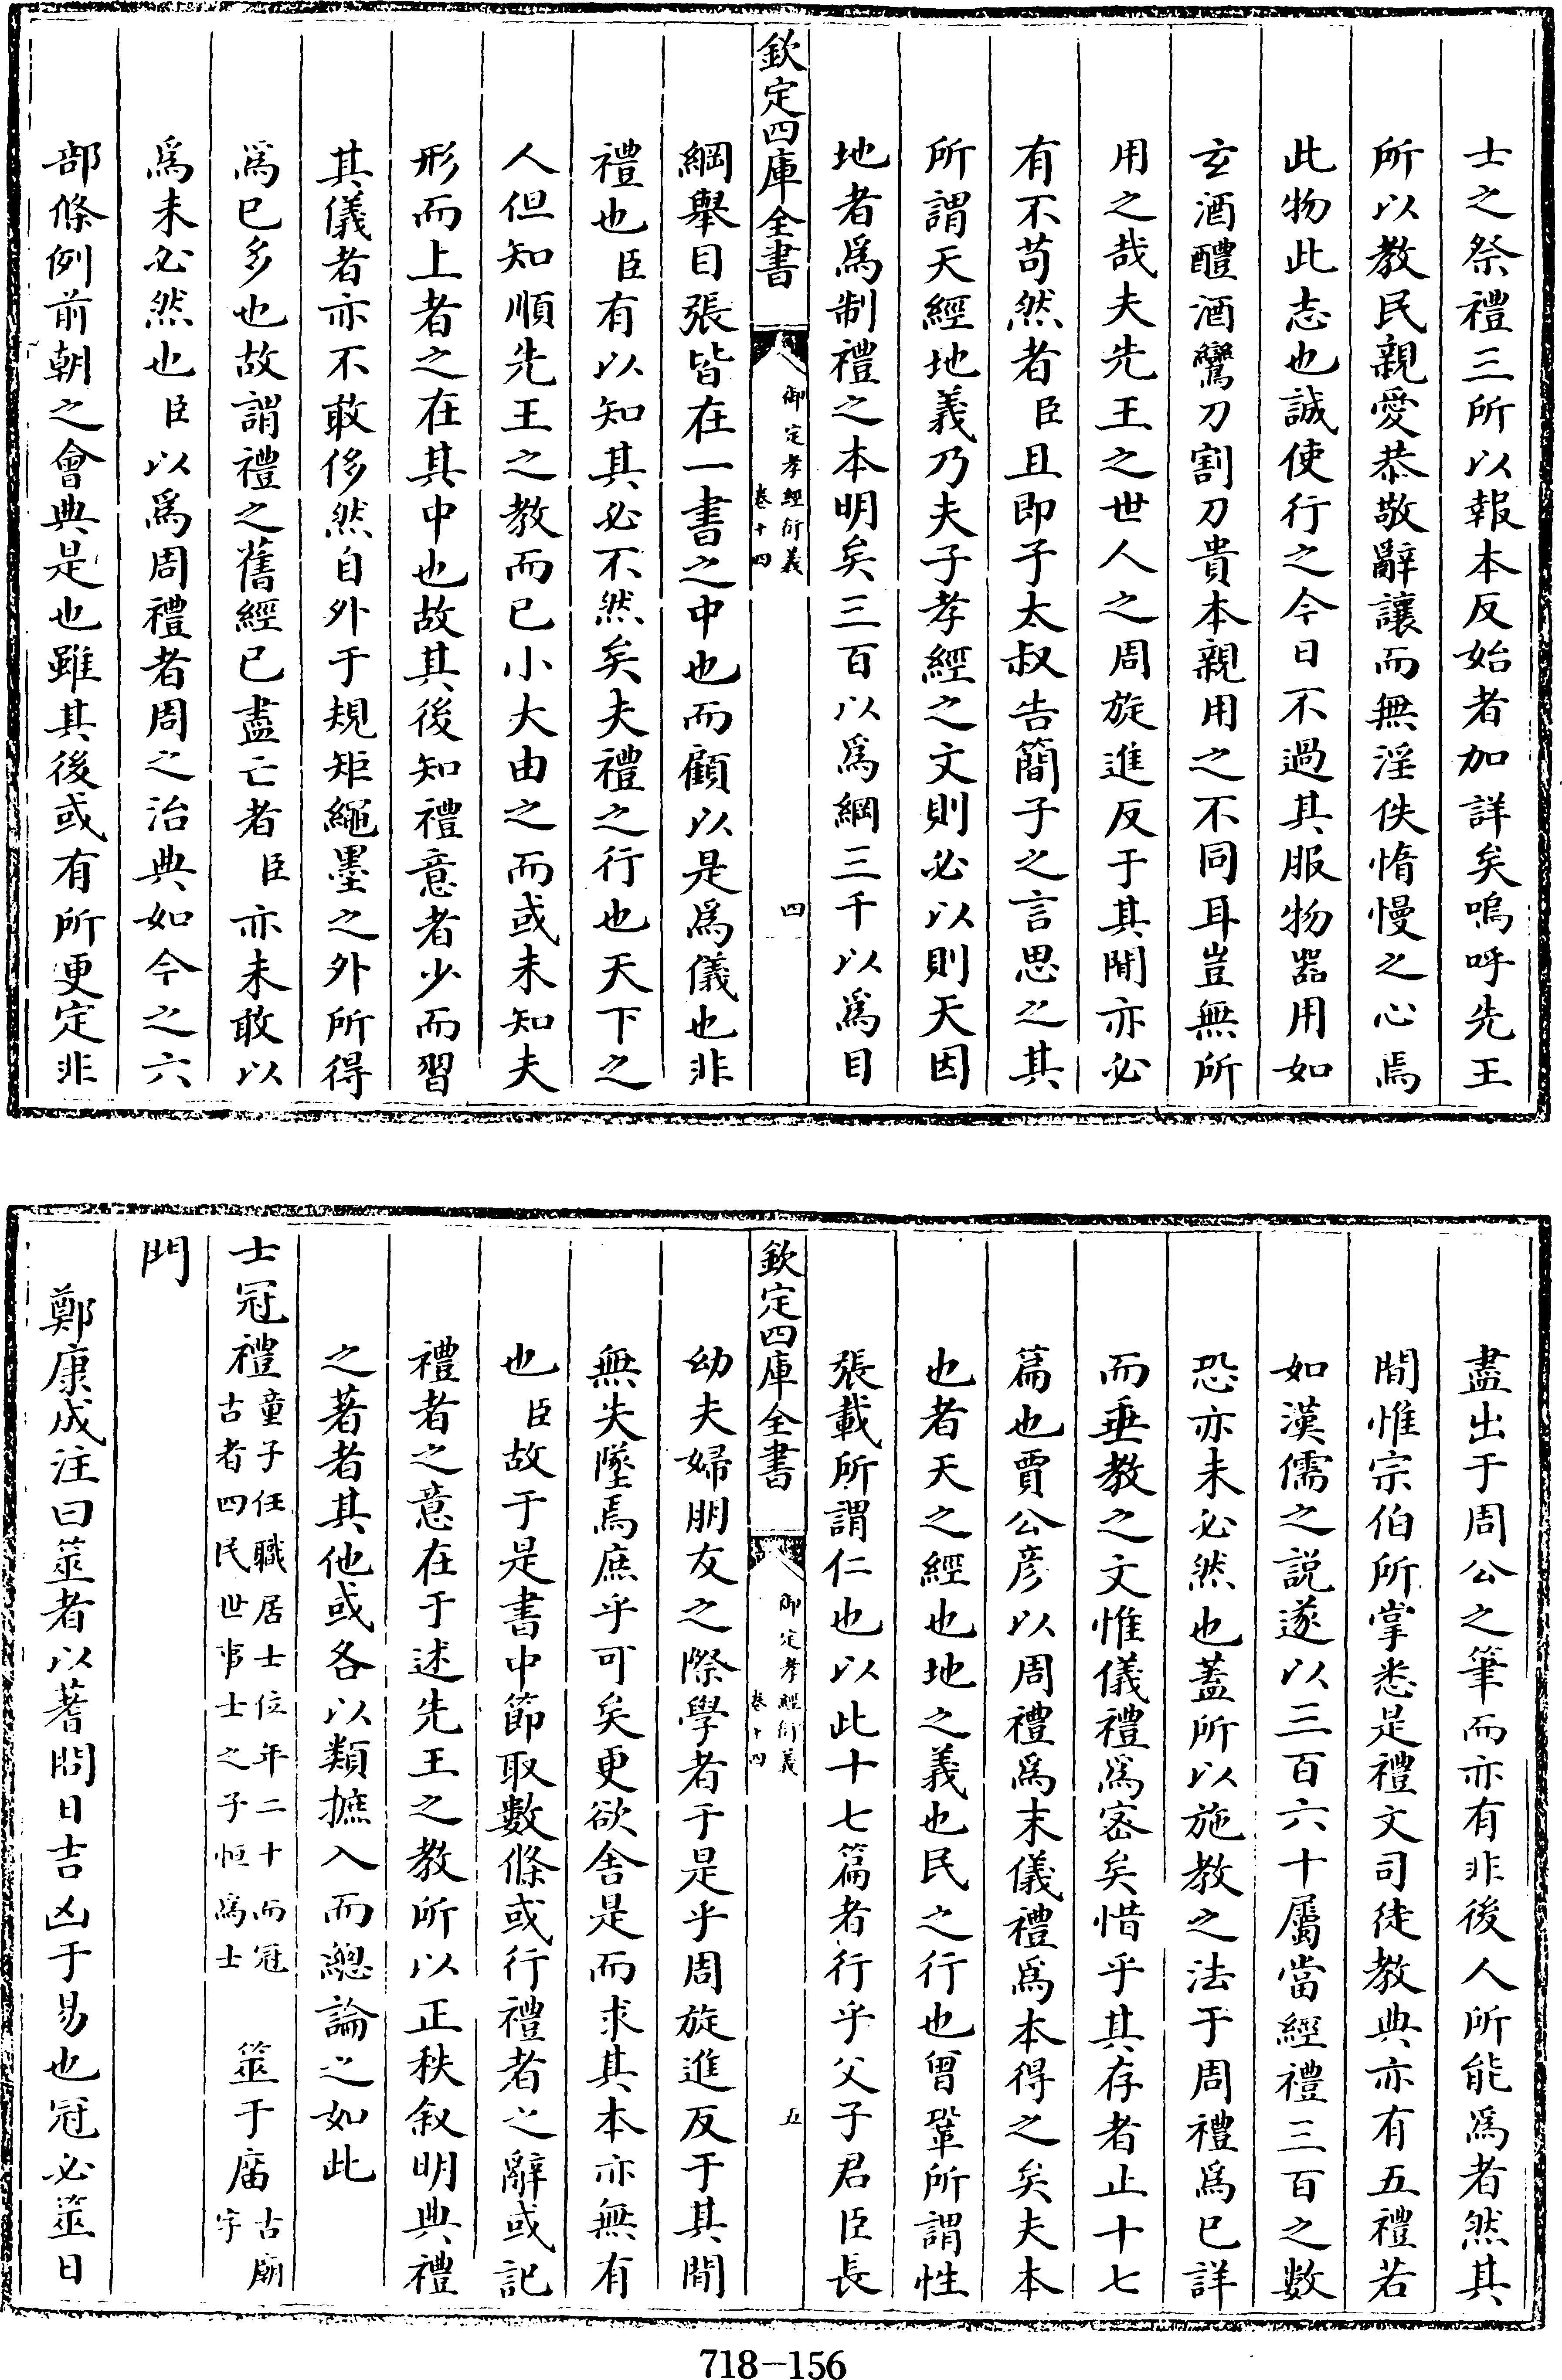 士之祭禮三所以報本反始者加詳矣嗚呼先王
所以教民親愛恭敬辭讓而無淫佚惰慢之心焉
此物此志也誠使行之今日不過其服物器用如
玄酒醴酒鸞刀割刀貴本親用之不同耳豈無所
用之哉夫先王之世人之周旋進反于其閒亦必
有不苟然者臣且即子太叔告簡子之言思之其
所謂天經地義乃夫子孝經之文則必以則天因
地者爲制禮之本明矣三百以爲綱三千以爲目
欽定四庫全書
御定孝經衍義
卷十四
四
綱舉目張皆在一書之中也而顧以是爲儀也非
禮也臣有以知其必不然矣夫禮之行也天下之
人但知順先王之教而已小大由之而或未知夫
形而上者之在其中也故其後知禮意者少而習
其儀者亦不敢侈然自外于規矩繩墨之外所得
爲已多也故謂禮之舊經已盡亡者臣亦未敢以
爲未必然也臣以爲周禮者周之治典如今之六
部條例前朝之會典是也雖其後或有所更定非
盡出于周公之筆而亦有非後人所能爲者然其
閒惟宗伯所掌悉是禮文司徒教典亦有五禮若
如漢儒之説遂以三百六十屬當經禮三百之數
恐亦未必然也蓋所以施教之法于周禮爲已詳
而垂教之文惟儀禮爲宻矣惜乎其存者止十七
篇也賈公彦以周禮爲末儀禮爲本得之矣夫本
也者天之經也地之義也民之行也曾鞏所謂性
張載所謂仁也以此十七篇者行乎父子君臣長
欽定四庫全書
御定孝經衍義
卷十四
五
幼夫婦朋友之際學者于是乎周旋進反于其閒
無失墜焉庶乎可矣更欲舍是而求其本亦無有
也臣故于是書中節取數條或行禮者之辭或記
禮者之意在于述先王之教所以正秩叙明典禮
之著者其他或各以類摭入而總論之如此
士冠禮童子任職居士位年二十而冠古者四民世事士之子恒爲士 筮于庿古廟字
門
鄭康成注曰筮者以蓍問日吉凶于易也冠必筮日
718-156